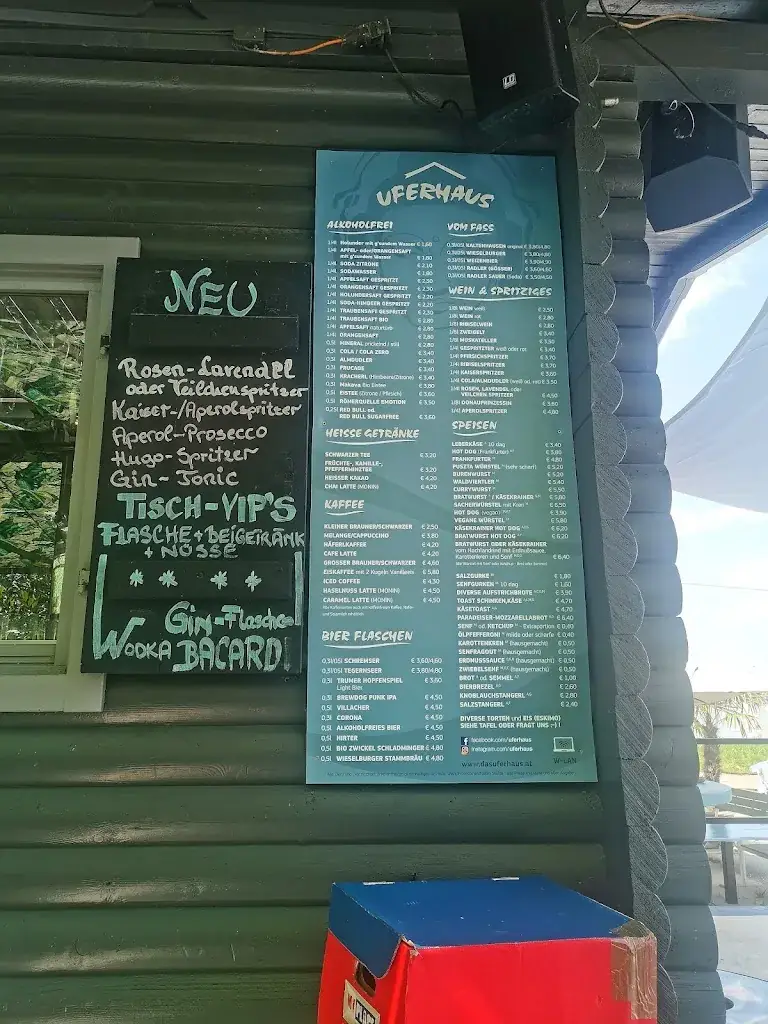 NEU
Rosen-Lavendel
oder Veilchenspritzer
Kaiser-/Aperolspritzer
Aperol-Prosecco
Hugo-Spritzer
Gin-Tonic
TISCH-VIP'S
FLASCHE + BEIGETRÄNK
+ NÜSSE
Gin-Flasche
WODKA BACARDI
LD
UFERHAUS
ALKOHOLFREI
1/4l Holunder mit g'sundem Wasser € 1,60
1/4l APFEL- oder/ORANGENSAFT
mit g'sundem Wasser € 1,80
1/4l SODA ZITRONE € 2,10
1/4l SODAWASSER € 1,80
1/4l APFELSAFT GESPRITZT € 2,30
1/4l ORANGENSAFT GESPRITZT € 2,30
1/4l HOLUNDERSAFT GESPRITZT € 2,20
1/4l SODA-HIMBEER GESPRITZT € 2,20
1/4l TRAUBENSAFT GESPRITZT € 2,30
1/4l TRAUBENSAFT BIO € 2,80
1/4l APFELSAFT naturtrüb € 2,80
1/4l ORANGENSAFT € 2,80
0,3l MINERAL prickelnd / still € 2,80
0,3l COLA / COLA ZERO € 3,40
0,3l ALMDUDLER € 3,40
0,3l FRUCADE € 3,40
0,3l KRACHERL (Himbeere/Zitrone) € 3,40
0,3l Makava Bio Eistee € 3,80
0,5l EISTEE (Zitrone / Pfirsich) € 3,60
0,5l RÖMERQUELLE EMOTION € 3,50
0,25l RED BULL od.
RED BULL SUGARFREE € 3,60
HEISSE GETRÄNKE
SCHWARZER TEE € 3,20
FRÜCHTE-, KAMILLE-,
PFEFFERMINZTEE € 3,20
HEISSER KAKAO € 4,20
CHAI LATTE (MONIN) € 4,20
KAFFEE
KLEINER BRAUNER/SCHWARZER € 2,50
MELANGE/CAPPUCCINO € 3,80
HÄFERLKAFFEE € 4,20
CAFE LATTE € 4,20
GROSSER BRAUNER/SCHWARZER € 4,60
EISKAFFEE mit 2 Kugeln Vanilleeis € 5,80
ICED COFFEE € 4,30
HASELNUSS LATTE (MONIN) € 4,50
CARAMEL LATTE (MONIN) € 4,50
BIER FLASCHEN
0,3l/05l SCHREMSER € 3,60/4,60
0,3l/05l TEGERNSEER € 3,80/4,80
0,3l TRUMER HOPFENSPIEL € 3,60
Light Bier
0,3l BREWDOG PUNK IPA € 4,50
0,5l VILLACHER € 4,50
0,3l CORONA € 4,50
0,5l ALKOHOLFREIES BIER € 4,50
0,5l HIRTER € 4,50
0,5l BIO ZWICKEL SCHLADMINGER € 4,80
0,5l WIESELBURGER STAMMBRÄU € 4,80
VOM FASS
0,3l/05l KALTENHAUSEN original € 3,80/4,80
0,3l/05l WIESELBURGER € 3,80/4,80
0,3l/05l WEIZENBIER € 3,90/4,90
0,3l/05l RADLER (GÖSSER) € 3,60/4,60
0,3l/05l RADLER SAUER (Soda) € 3,50/4,50
WEIN & SPRITZIGES
1/8l WEIN weiß € 2,50
1/8l WEIN rot € 2,80
1/8l RIBISELWEIN € 2,80
1/8l ZWEIGELT € 3,40
1/8l MUSKATELLER € 3,50
1/4l GESPRITZTER weiß oder rot € 3,40
1/4l PFIRSICHSPRITZER € 3,70
1/4l RIBISELSPRITZER € 3,70
1/4l KAISERSPRITZER € 3,60
1/4l COLA/ALMDUDLER (weiß od. rot) € 3,50
1/4l ROSEN, LAVENDEL oder
VEILCHEN SPRITZER € 4,50
1/8l DONAUPRINZESSIN € 3,80
1/4l APEROLSPRITZER € 4,80
SPEISEN
LEBERKÄSE 10 dag € 3,40
HOT DOG (Frankfurter) € 3,80
FRANKFURTER € 4,80
PUSZTA WÜRSTEL (sehr scharf) € 5,20
BURENWURST € 5,20
WALDVIERTLER € 5,40
CURRYWURST € 5,50
BRATWURST / KÄSEKRAINER € 5,80
SACHERWÜRSTEL mit Kren € 6,50
HOT DOG (vegan) € 3,90
VEGANE WÜRSTEL € 5,80
KÄSEKRAINER HOT DOG € 6,20
BRATWURST HOT DOG € 6,20
BRATWURST ODER KÄSEKRAINER
vom Hochlandrind mit Erdnußsauce,
Karottenkren und Senf € 6,40
SALZGURKE € 1,80
SENFGURKEN 10 dag € 1,60
DIVERSE AUFSTRICHBROTE € 3,90
TOAST SCHINKEN,KÄSE € 4,70
KÄSETOAST € 4,70
PARADEISER-MOZZARELLABROT € 6,40
SENF od. KETCHUP - Extraportion € 0,40
ÖLPFEFFERONI milde oder scharfe € 0,40
KAROTTENKREN (hausgemacht) € 0,50
SENFRAGOUT (hausgemacht) € 0,50
ERDNUSSSAUCE (hausgemacht) € 0,50
ZWIEBELSENF (hausgemacht) € 0,50
BROT od. SEMMEL € 1,00
BIERBREZEL € 2,60
KNOBLAUCHSTANGERL € 2,80
SALZSTANGERL € 2,40
DIVERSE TORTEN und EIS (ESKIMO)
SIEHE TAFEL ODER FRAGT UNS ;-) !
facebook.com/uferhaus
instagram.com/uferhaus
www.dasuferhaus.at
W-LAN